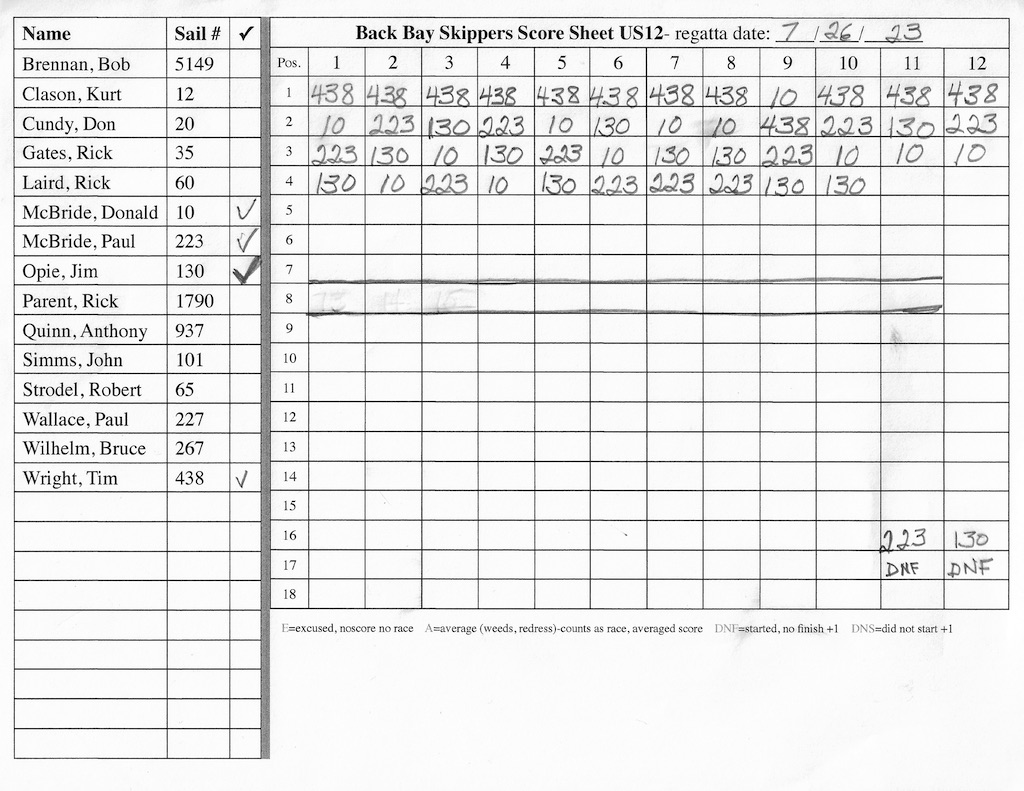 Name Sail # ✓ Back Bay Skippers Score Sheet US12- regatta date: 7 / 26 / 23
Brennan, Bob 5149 Pos. 1 2 3 4 5 6 7 8 9 10 11 12
Clason, Kurt 12 1 438 438 438 438 438 438 438 438 10 438 438 438
Cundy, Don 20 2 10 223 130 223 10 130 10 10 438 223 130 223
Gates, Rick 35 3 223 130 10 130 223 10 130 130 223 10 10 10
Laird, Rick 60 4 130 10 223 10 130 223 223 223 130 130
McBride, Donald 10 ✓ 5
McBride, Paul 223 ✓ 6
Opie, Jim 130 ✓ 7
Parent, Rick 1790 8
Quinn, Anthony 937 9
Simms, John 101 10
Strodel, Robert 65 11
Wallace, Paul 227 12
Wilhelm, Bruce 267 13
Wright, Tim 438 ✓ 14
15
16 223 130
17 DNF DNF
18
E=excused, noscore no race A=average (weeds, redress)-counts as race, averaged score DNF=started, no finish +1 DNS=did not start +1